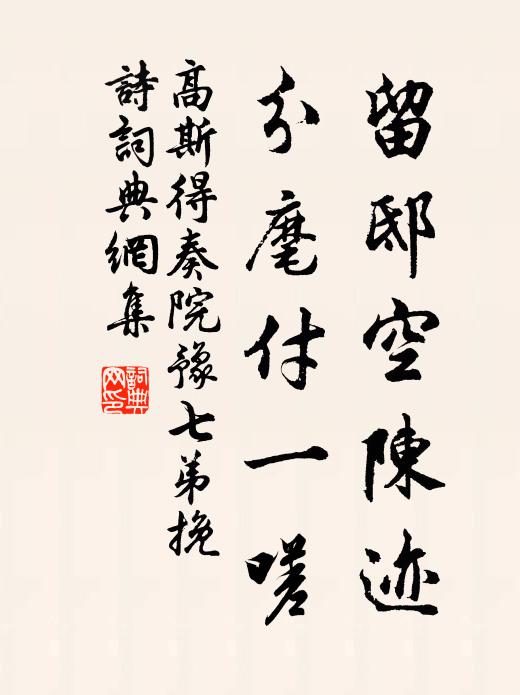 留邸空陳迹
分麾付一嗟
高斯得奏院豫七弟挽
詩詞典網集
詞典網印